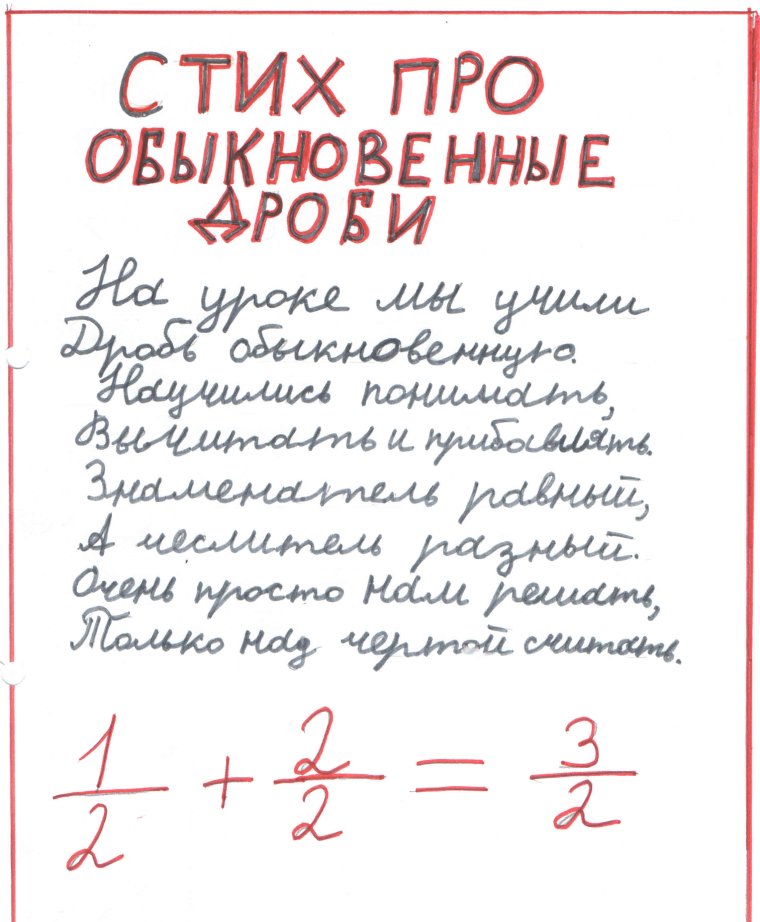 СТИХ ПРО
ОБЫКНОВЕННЫЕ
ДРОБИ
На уроке мы учили
Дробь обыкновенную.
Научились понимать,
Вычитать и прибавлять.
Знаменатель равный,
А числитель разный.
Очень просто нам решать,
Только над чертой считать.
1/2 + 2/2 = 3/2